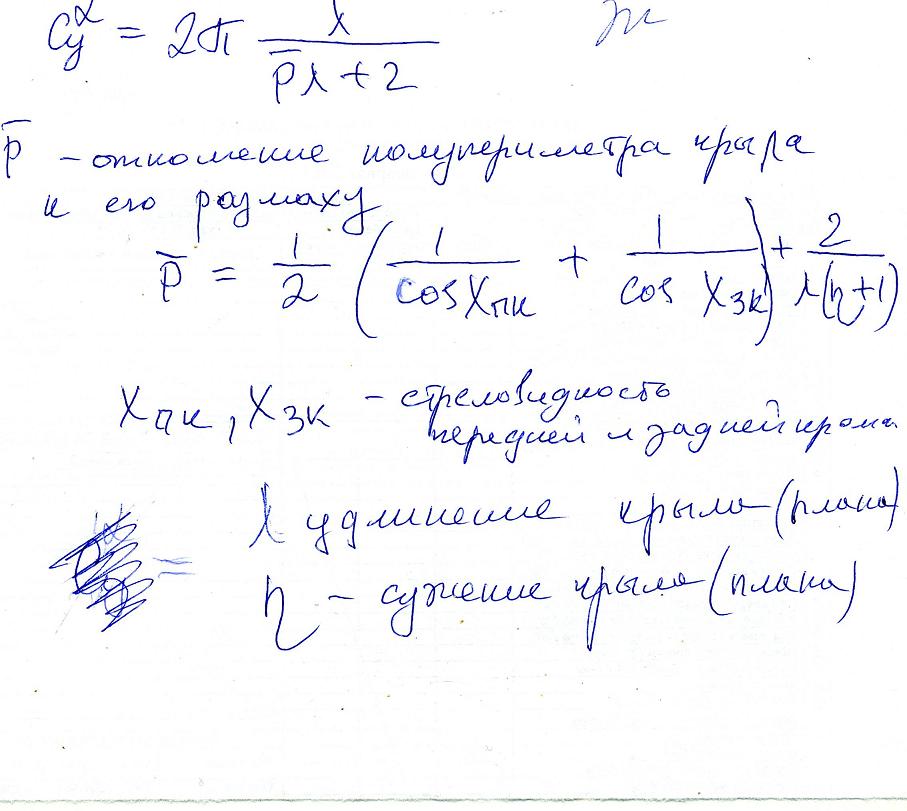 Cy^α = 2π λ / (p̄λ + 2)
p̄ – отношение полупериметра крыла
к его размаху
p̄ = 1/2 (1/cos χпк + 1/cos χзк) + 2/(λ(η+1))
χпк, χзк – стреловидность
передней и задней кромк
λ удлинение крыла (плана)
η – сужение крыла (плана)